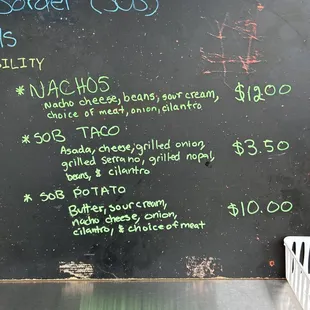 Border (SOB)
ILITY
* NACHOS
Nacho cheese, beans, sour cream,
choice of meat, onion, cilantro
$1200
* SOB TACO
Asada, cheese, grilled onion,
grilled Serrano, grilled nopal,
beans, & cilantro
$3.50
* SOB POTATO
Butter, sour cream,
nacho cheese, onion,
cilantro, & choice of meat
$10.00